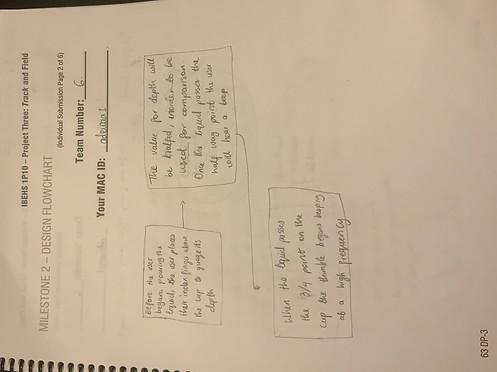 IBEHS 1P10 – Project Three: Track and Field
MILESTONE 2 – DESIGN FLOWCHART
(Individual Submission Page 2 of 6)
Team Number: 6
Your MAC ID:
Before the user
begins pouring the
liquid, the user places
their index finger above
the cup to guage its
depth
The value for depth will
be halfed, inorder to be
used for comparison
Once the liquid passes the
half way point the user
will hear a beep
When the liquid passes
the 3/4 point on the
cup the thimble begins beeping
at a high frequency
63 DP-3